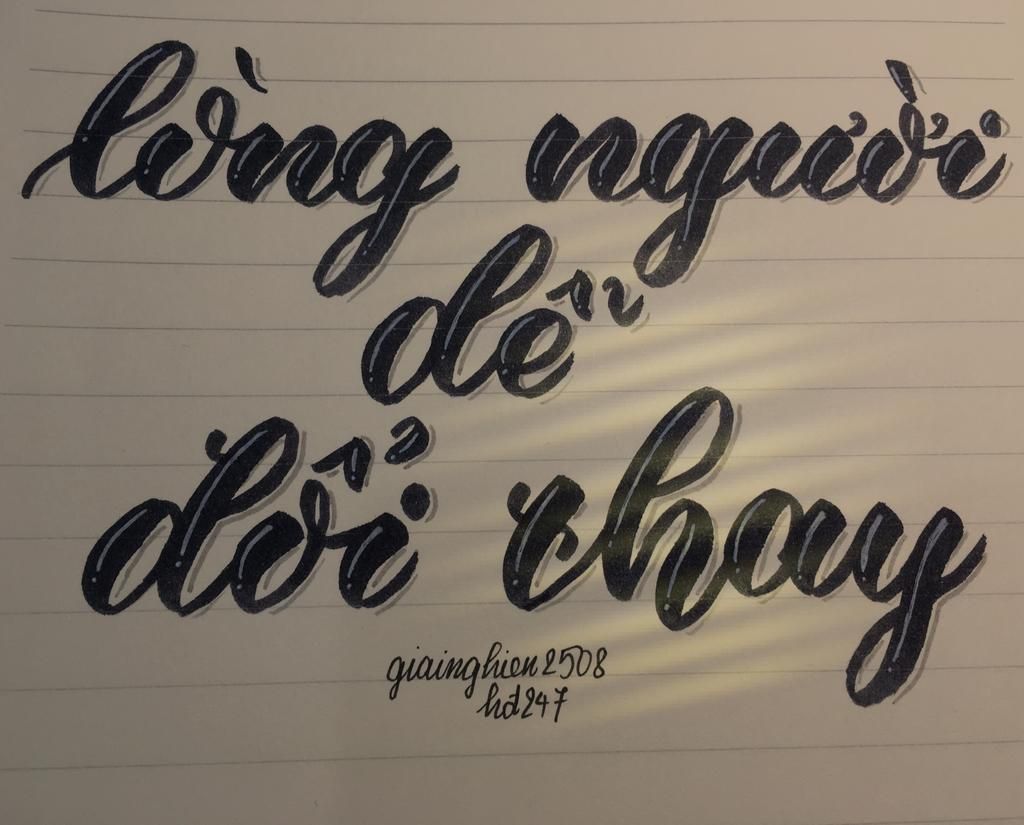 lòng người
dễ
đổi thay
giainghien2508
hđ247